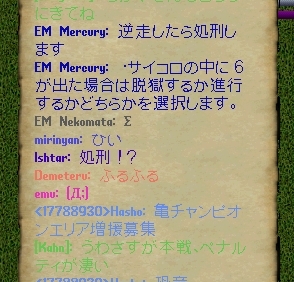 にきてね
EM Mercury: 逆走したら処刑し
ます
EM Mercury: ・サイコロの中に6
が出た場合は脱獄するか進行
するかどちらかを選択します。
EM Nekomata: Σ
miringan: ひい
Ishtar: 処刑!?
Demeteru: ふるふる
emu: [Д;]
<17788930>Hosho: 亀チャンピオ
ンエリア増援募集
[Kaho]: うわさすが本戦、ペナル
ティが凄い